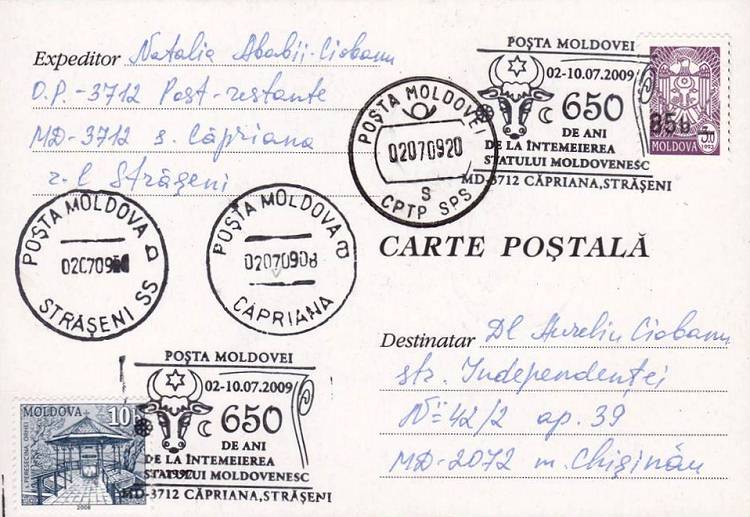 Expeditor Natalia Ababii-Ciobanu
O.P.-3712 Post-restante
MD-3712 s. Căpriana
r-l Strășeni
POȘTA MOLDOVEI
02-10.07.2009
650
DE ANI
DE LA ÎNTEMEIEREA
STATULUI MOLDOVENESC
MD-3712 CĂPRIANA,STRĂȘENI
85b
MOLDOVA
POȘTA MOLDOVEI
02070920
S
CPTP SPS
POȘTA MOLDOVA
STRĂȘENI SS
POȘTA MOLDOVA
02070908
CĂPRIANA
CARTE POȘTALĂ
Destinatar Dl Aureliu Ciobanu
str. Independenței
N= 42/2 ap. 39
MD-2072 m. Chișinău
POȘTA MOLDOVEI
02-10.07.2009
650
DE ANI
DE LA ÎNTEMEIEREA
STATULUI MOLDOVENESC
MD-3712 CĂPRIANA,STRĂȘENI
MOLDOVA 10b
2008